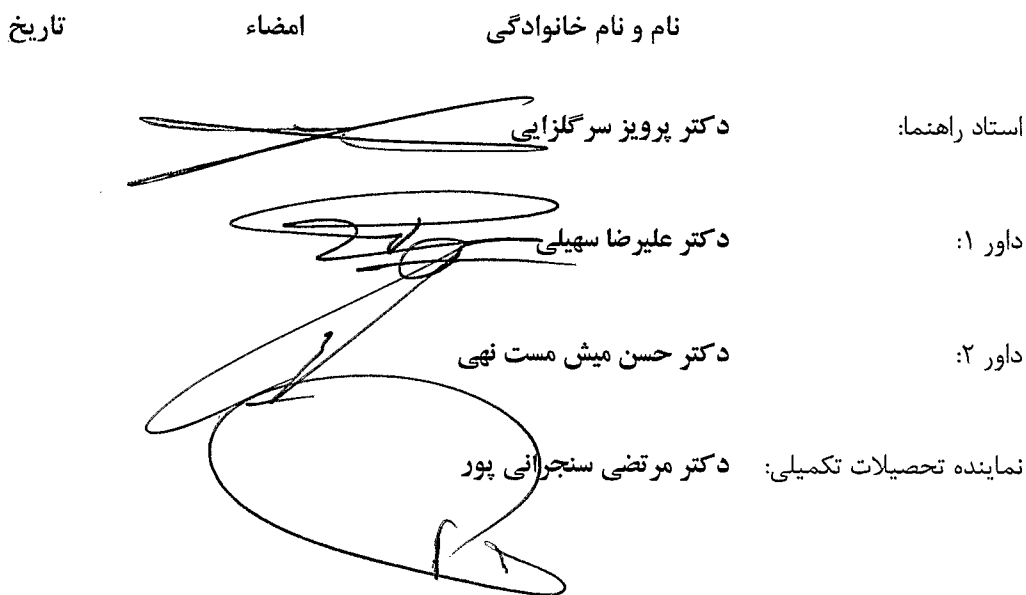 نام و نام خانوادگی امضاء تاریخ
استاد راهنما: دکتر پرویز سرگلزایی
داور ۱: دکتر علیرضا سهیلی
داور ۲: دکتر حسن میش مست نهی
نماینده تحصیلات تکمیلی: دکتر مرتضی سنجرانی پور